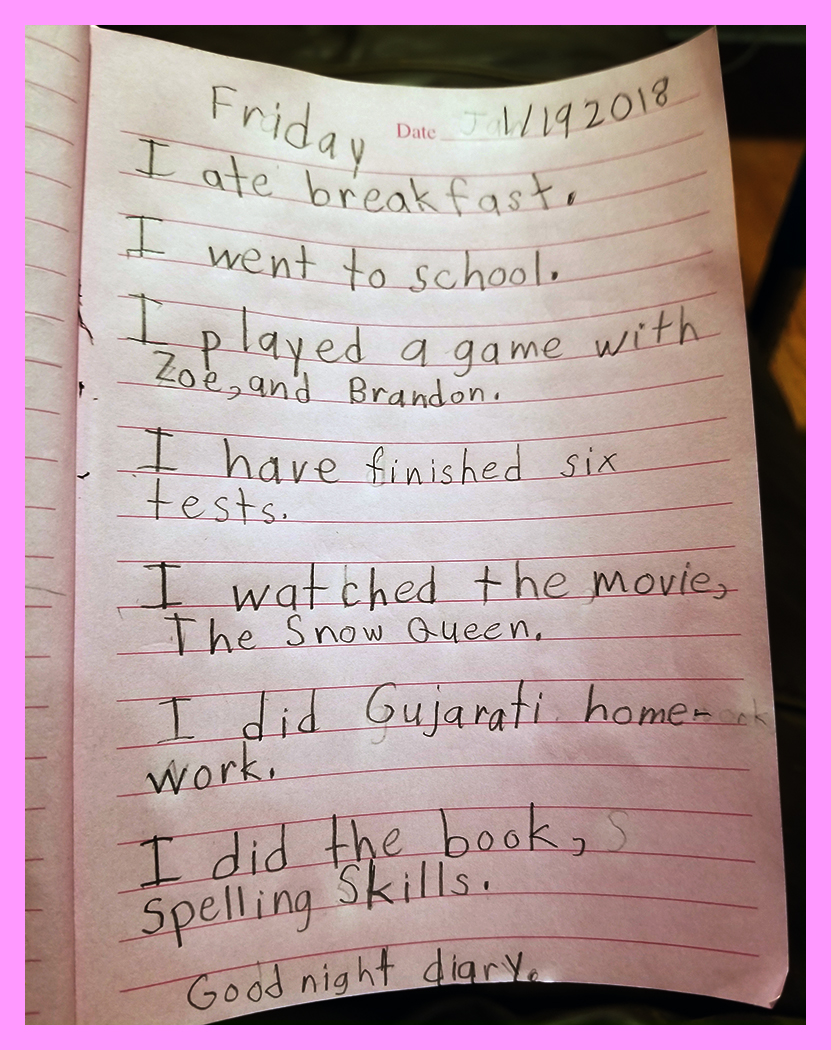 Friday Date 1/19 2018
I ate breakfast.
I went to school.
I played a game with
Zoe, and Brandon.
I have finished six
tests.
I watched the movie,
The Snow Queen.
I did Gujarati home-
work.
I did the book,
Spelling Skills.
Good night diary.